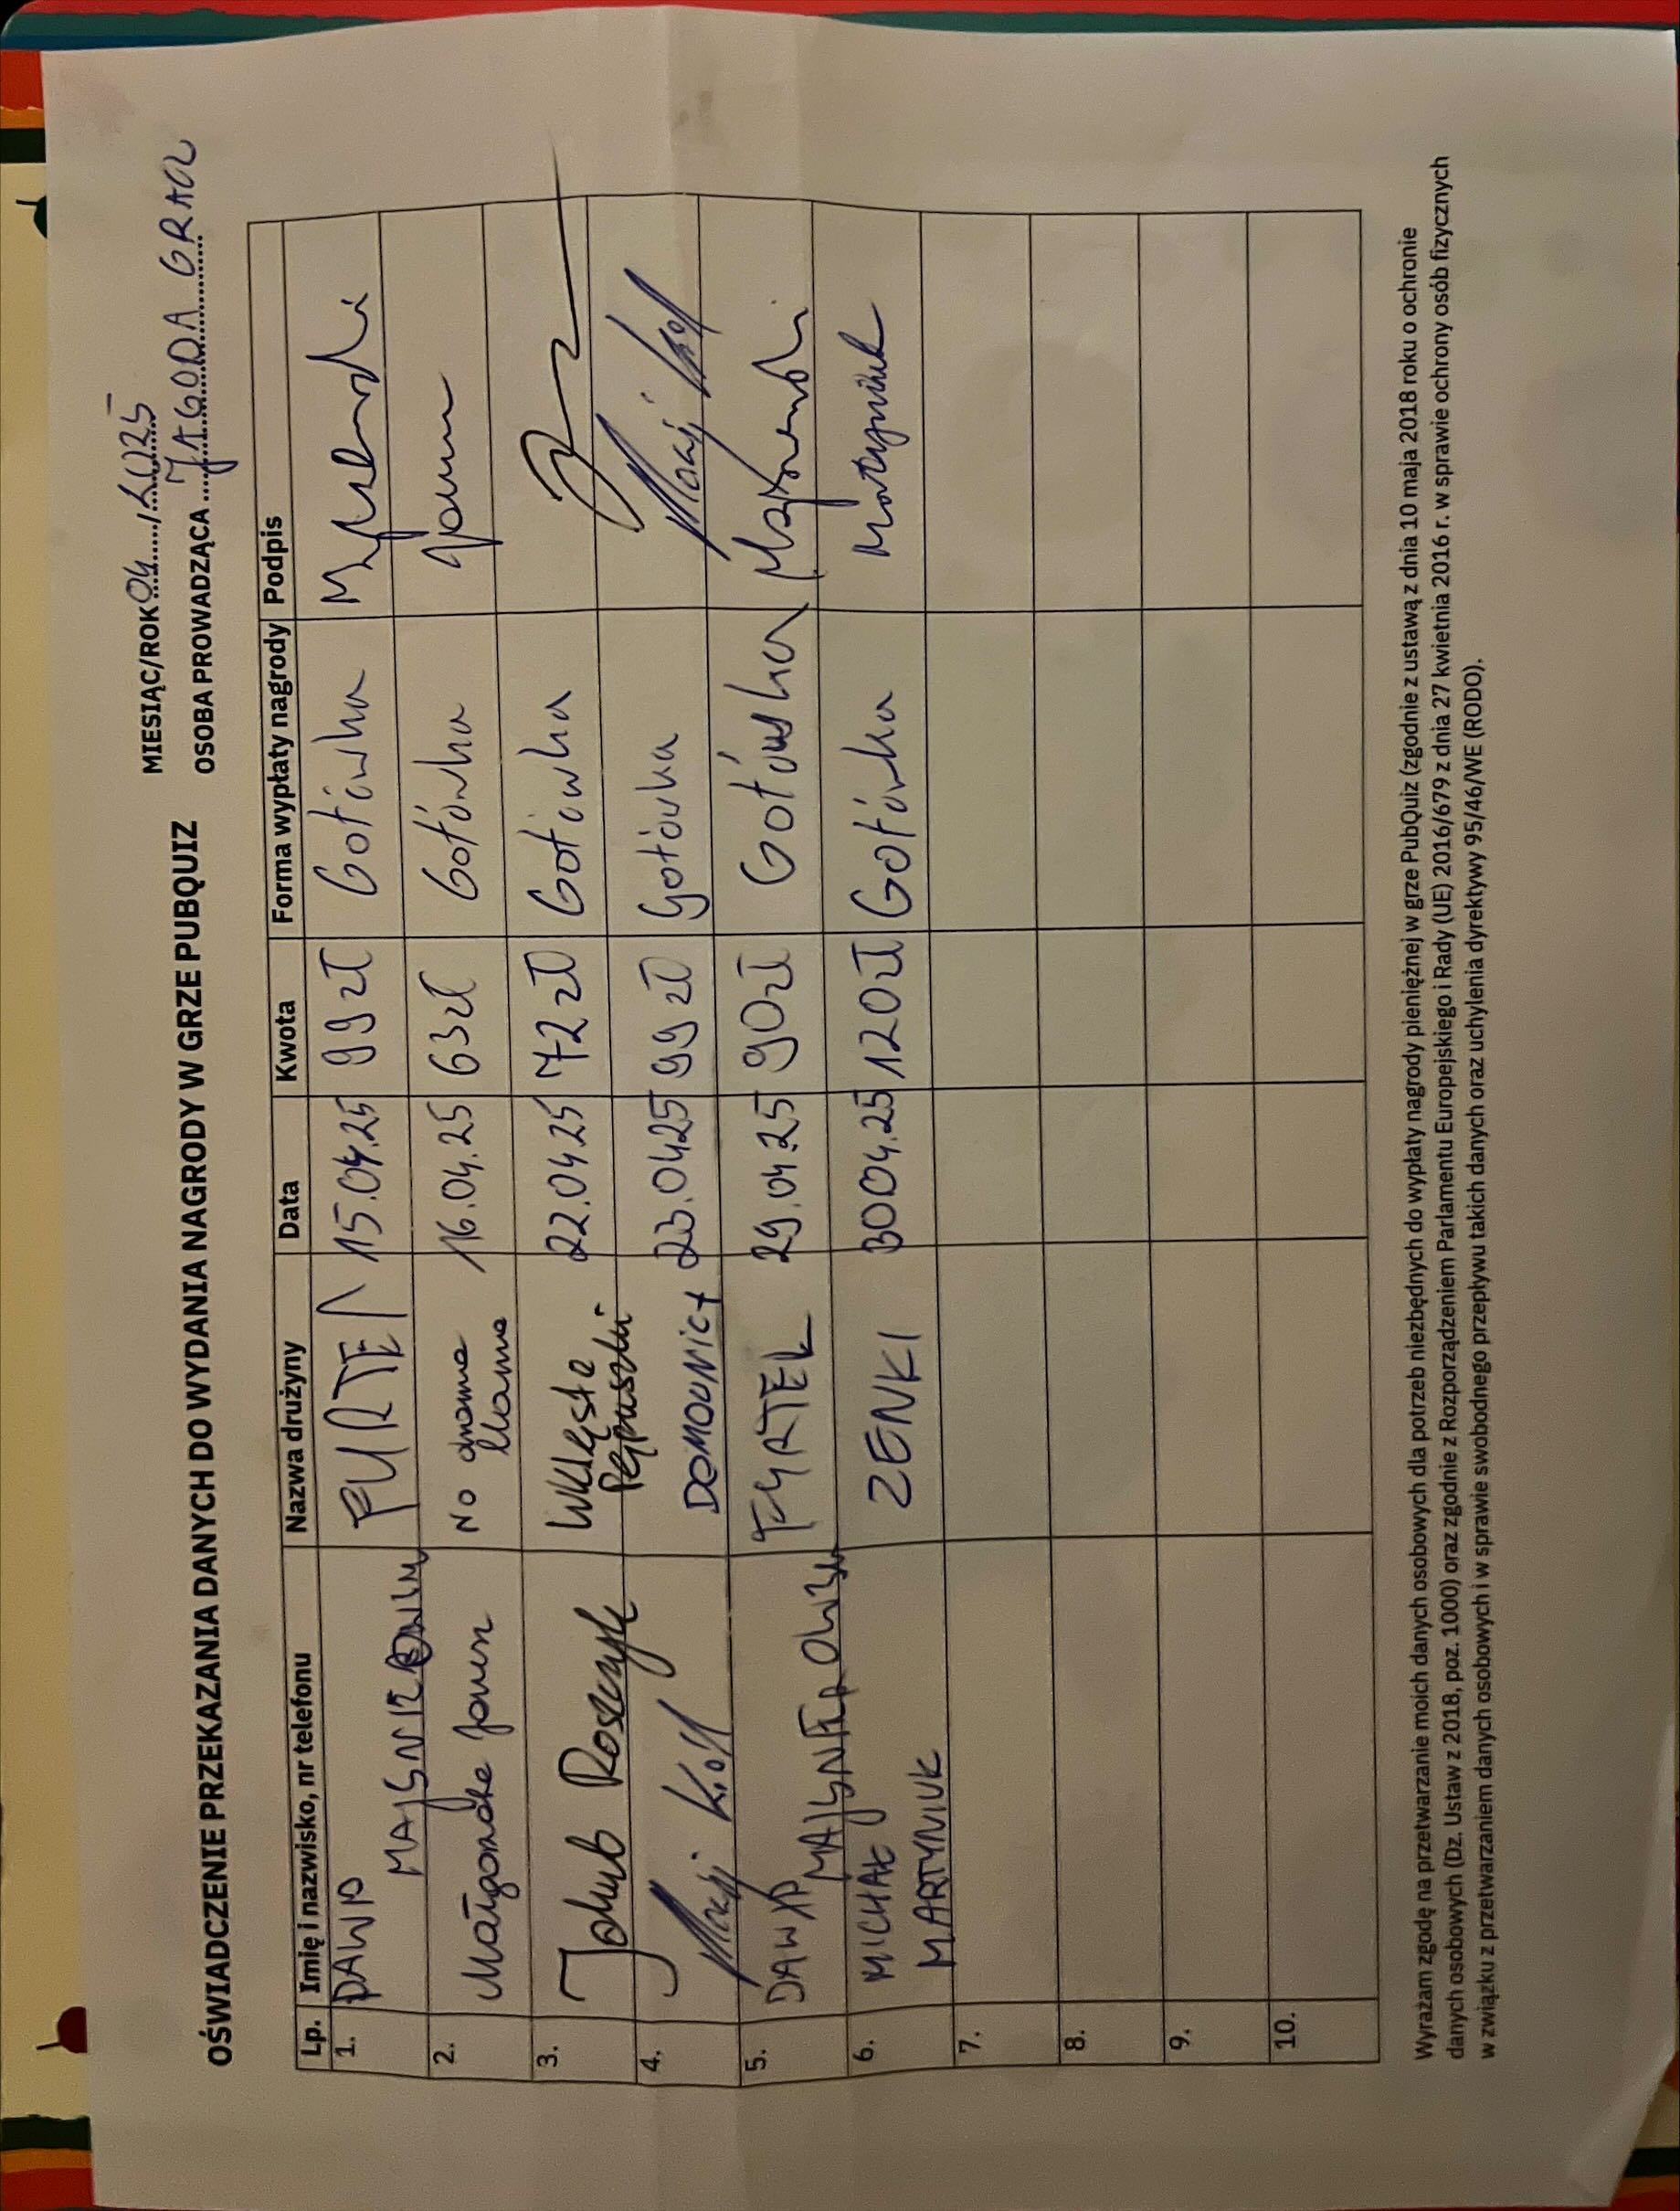 MIESIĄC/ROK 04 / 2025
OŚWIADCZENIE PRZEKAZANIA DANYCH DO WYDANIA NAGRODY W GRZE PUBQUIZ
OSOBA PROWADZĄCA JAGODA GRACZ
Lp. Imię i nazwisko, nr telefonu Nazwa drużyny Data Kwota Forma wypłaty nagrody Podpis
1. DAWID FYRTEL 15.04.25 99 zł Gotówka
2. Małgorzata No drama llama 16.04.25 63zł Gotówka
3. Jakub Roszczyk Wklęsłe Pępuszki 22.04.25 72 zł Gotówka
4. Maciej Król DOMOWNICY 23.0425 99 zł Gotówka Maciej Król
5. DAWID FYRTEL 29.04.25 90zł Gotówka
6. MICHAŁ ZENKI 3004.25 120zł Gotówka Martyniuk
MARTYNIUK
7.
8.
9.
10.
Wyrażam zgodę na przetwarzanie moich danych osobowych dla potrzeb niezbędnych do wypłaty nagrody pieniężnej w grze PubQuiz (zgodnie z ustawą z dnia 10 maja 2018 roku o ochronie
danych osobowych (Dz. Ustaw z 2018, poz. 1000) oraz zgodnie z Rozporządzeniem Parlamentu Europejskiego i Rady (UE) 2016/679 z dnia 27 kwietnia 2016 r. w sprawie ochrony osób fizycznych
w związku z przetwarzaniem danych osobowych i w sprawie swobodnego przepływu takich danych oraz uchylenia dyrektywy 95/46/WE (RODO).